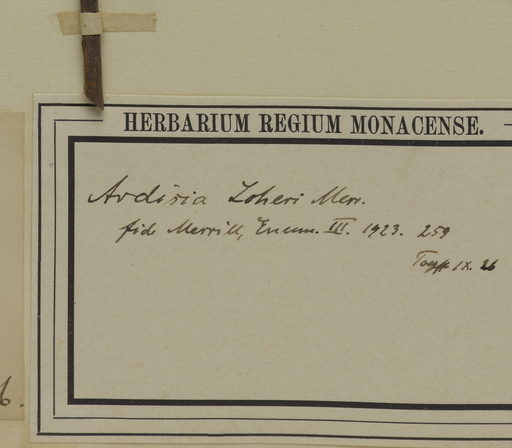 HERBARIUM REGIUM MONACENSE.
Ardisia Loheri Merr.
fid Merrill, Enum. III. 1923. 259
IX. 26
6.